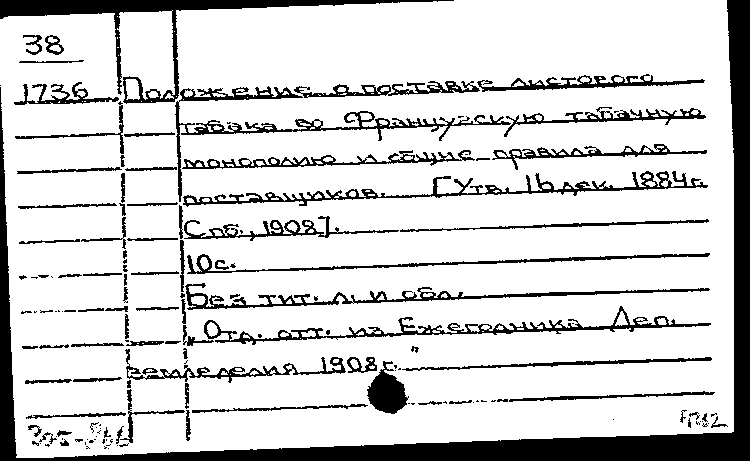 38
1736 Положение о поставке листового
табака во Французскую табачную
монополию и общие правила для
поставщиков. [Утв. 16 дек. 1884г.
Спб., 1908].
10с.
Без тит. л. и обл.
„Отд. отт. из Ежегодника Деп.
земледелия 1908г."